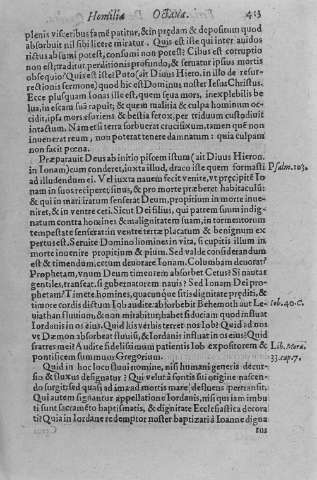 Homiliæ Octaua. 413
plenis visceribus famē patitur, & in prædam & depositum quod
absorbuit nil sibi licere miratur. Quis est iste qui inter auidos
rictus absumi potest, consumi non potest? Cibus est corruptio
non est; traditur perditioni profundo, & seruatur ipsius mortis
obsequio? Quis est iste? Poto (ait Diuus Hiero. in illo de resur-
rectionis sermone) quod hic est Dominus noster Iesus Christus.
Ecce plusquam Ionas ille est, quem sæua mors, inexplebilis be
lua, in escam suā rapuit; & quem malitia & culpa hominum oc-
cidit, ipsa mors esuriens & bestia ferox, per triduum custodiuit
intactum. Nam etsi terra sorbuerat crucifixum, tamen quē non
inuenerat reum, non poterat tenere damnatum: quia culpam
non facit pœna.
Præparauit Deus ab initio piscem istum (ait Diuus Hieron.
in Ionam) eum conderet, iuxta illud, draco iste quem formasti Psalm. 103.
ad illudendum ei. Vel iuxta nauem fecit venire, vt præcipitē Io
nam in suos reciperet sinus, & pro morte præberet habitaculū:
& qui in mari iratum senserat Deum, propitium in morte inue-
niret, & in ventre ceti. Sicut Dei filius, qui patrem suum indig-
natum contra homines & malignitatem suam, in tormentorum
tempestate senserat: in ventre tertæ placatum & benignum ex
pertus est. Seruite Domino homines in vita, si cupitis illum in
morte inuenire propitium & pium. Sed valde considerandum
est & timendum, cetum deuorare Ionam. Columbam cetorax?
Prophetam, vnum Deum timeremi absorbet Cetus? Si nautas
gentiles, transeat, si gubernatorem nauis? Sed Ionam Dei pro-
phetam? Timete homines, quacunque sitis dignitate præditi, &
timore cordis dictum Iob audite: absorbebit Behemoth ut Le- Iob. 40. C.
uiathan fluuium, & non mirabitur, habet fiduciam quod influat
Iordanis in os eius. Quid his verbis terret nos Iob? Quid ad nos
vt Dæmon absorbeat fluuiū, & Iordanis influat in os eius? Quid
fratres mei? Audite fidelissimum patientis Iob expositorem & Lib. Mora.
pontificem summum Gregorium. 33. cap. 7.
Quid in hoc loco fluui nomine, nisi humani generis decur-
sio & fluxus designatur? Qui velut à fontis sui origine nascen-
do surgit; sed quasi ad ima ad mortis mare, defluens pertransit.
Qui autem signantur appellatione Iordanis, nisi qui iam imbu
ti sunt sacramēto baptismatis, & dignitate Ecclesiastica decora
ti? Quia in Iordane redemptor noster baptizari à Ioanne digna
tus